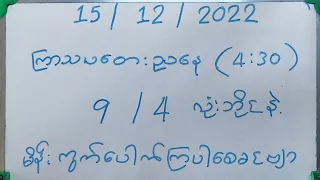 15 / 12 / 2022
ကြာသပတေးညနေ (4:30)
9 / 4 လုံးဘိုင်နဲ့
မိန်းကွက်ပေါက်ကြပါစေခင်ဗျာ